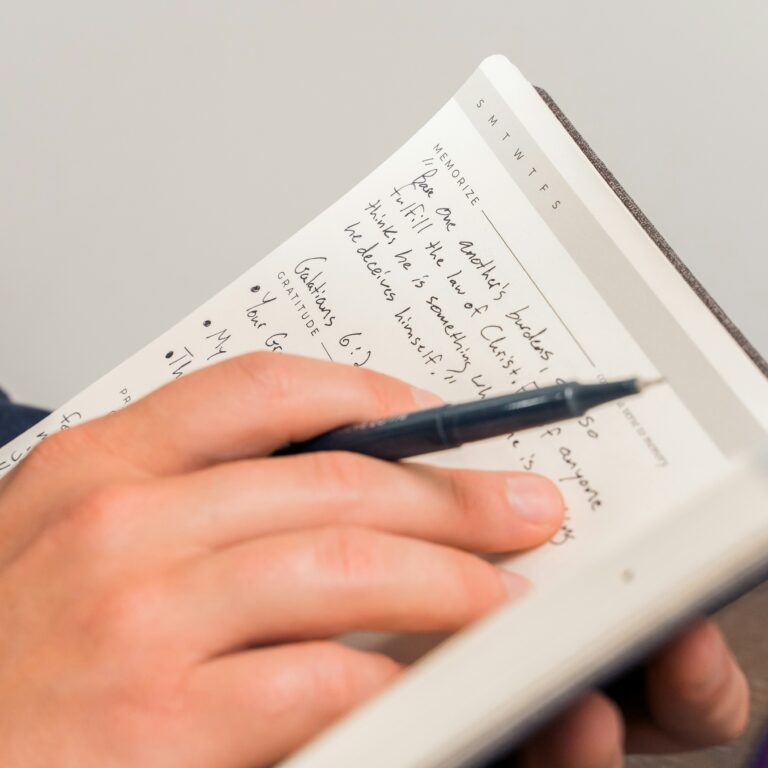 S M T W T F S
MEMORIZE
a verse to memory
"Bare one another's burdens, so
fulfill the law of Christ. if anyone
thinks he is something he is
he deceives himself."
Galatians 6:2
GRATITUDE
• Your
• My